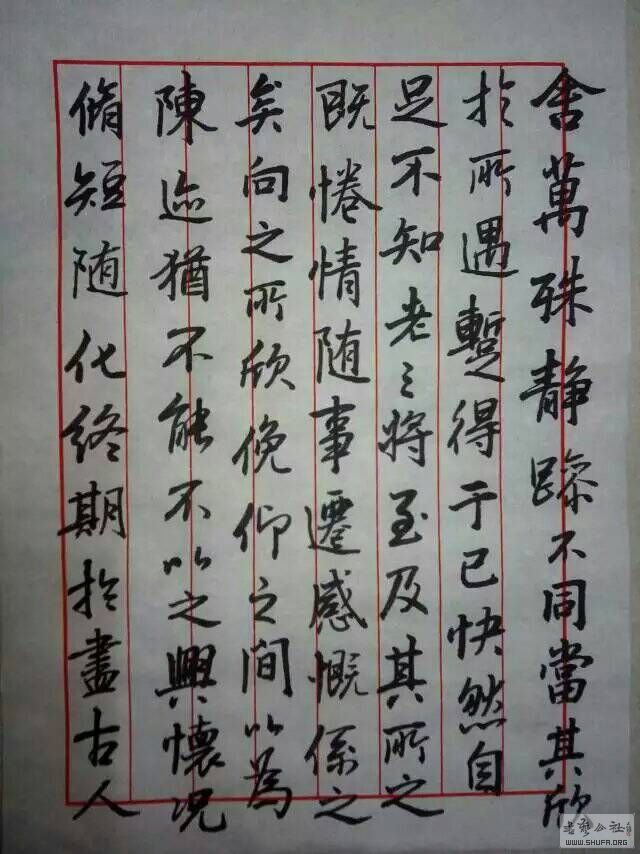 舍萬殊静躁不同當其欣
於所遇蹔得于己快然自
足不知老之将至及其所之
既惓情随事遷感慨係之
矣向之所欣俛仰之間以為
陳迹猶不能不以之興懷况
脩短随化終期於盡古人
書藝公社
WWW.SHUFA.ORG